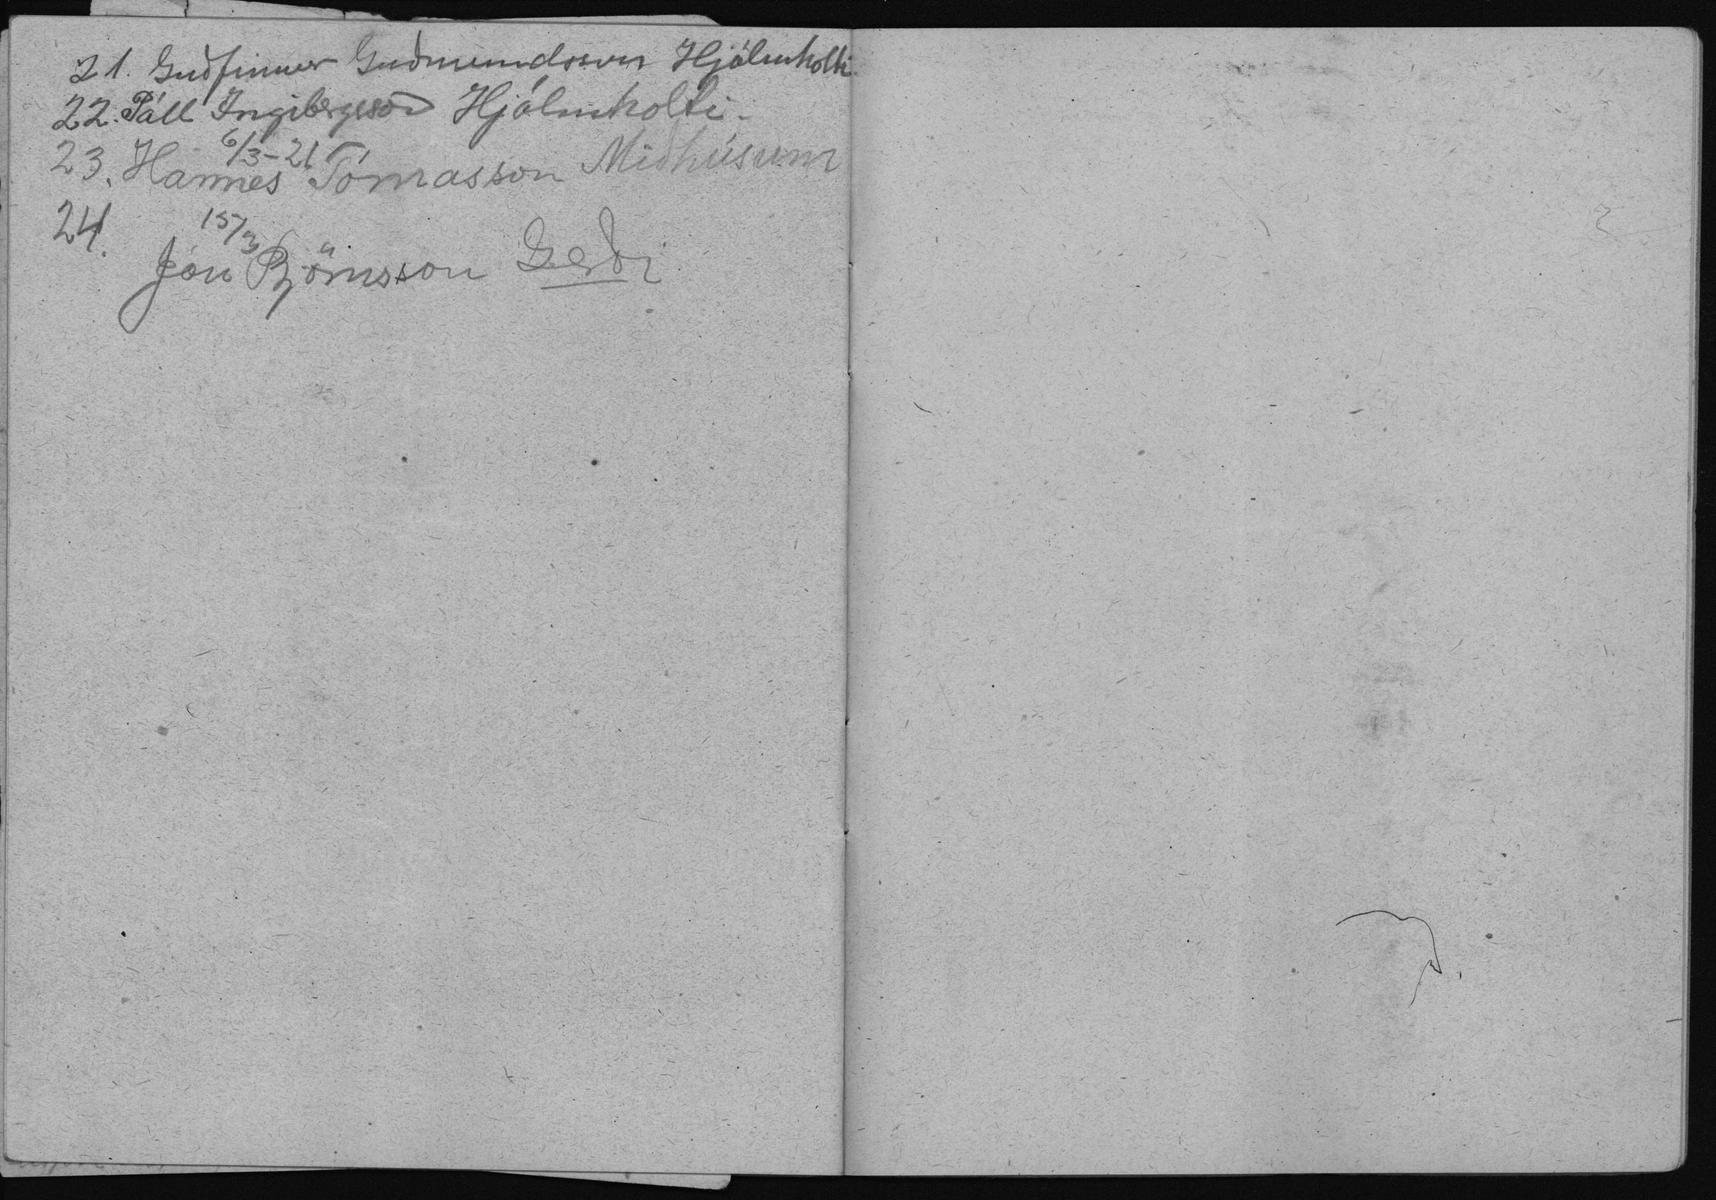 21. Guðfinnur Guðmundsson Hjálmholti.
22. Páll Ingibergsson Hjálmholti.
6/3-21
23. Hannes Tómasson Miðhúsum
15/3
24. Jón Björnsson Gerði